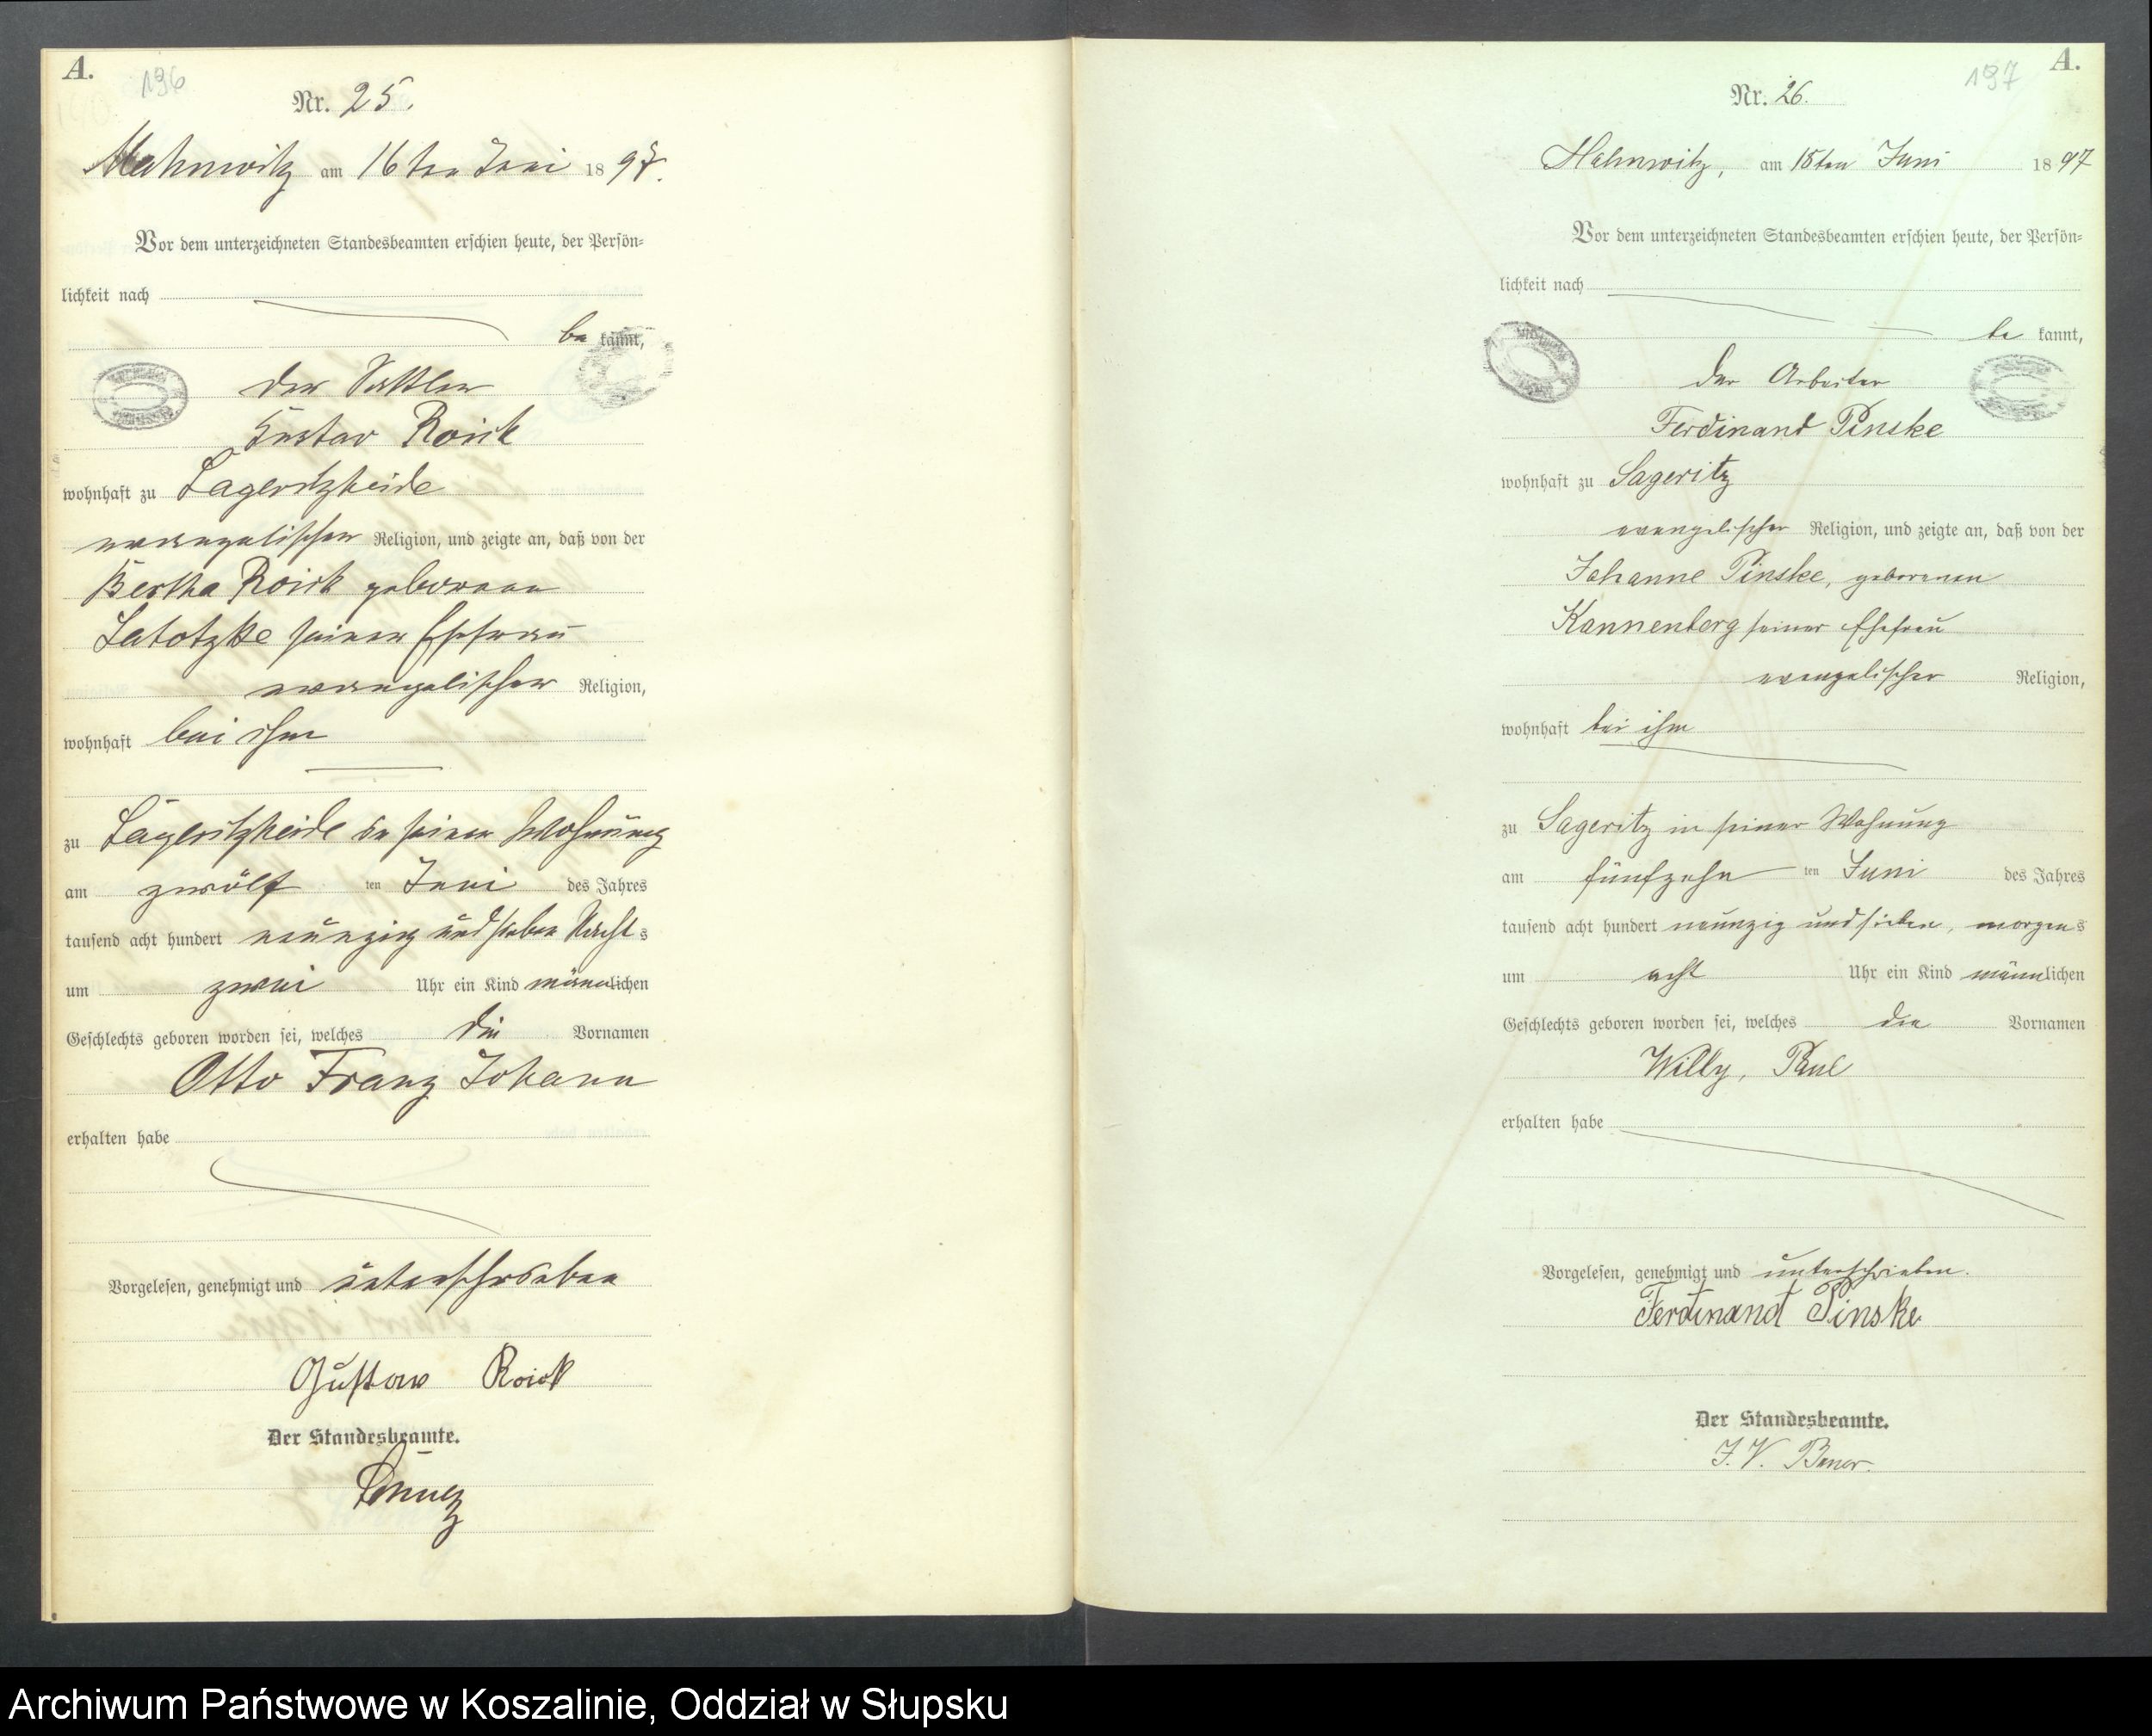 A.
196
Nr. 25.
Mahnwitz am 16ten Juni 1897.
Vor dem unterzeichneten Standesbeamten erschien heute, der Persön=
lichkeit nach
be kannt,
der Sattler
Gustav Roick
wohnhaft zu Sageritzheide
evangelischer Religion, und zeigte an, daß von der
Bertha Roick geborenen
Latotzke seiner Ehefrau
evangelischer Religion,
wohnhaft bei ihm
zu Sageritzheide in seiner Wohnung
am zwölf ten Juni des Jahres
tausend acht hundert neunzig und sieben Nachts
um zwei Uhr ein Kind männlichen
Geschlechts geboren worden sei, welches die Vornamen
Otto Franz Johann
erhalten habe
Vorgelesen, genehmigt und unterschrieben
Gustav Roick
Der Standesbeamte.
A.
197
Nr. 26.
Mahnwitz, am 18ten Juni 1897
Vor dem unterzeichneten Standesbeamten erschien heute, der Persön=
lichkeit nach
be kannt,
der Arbeiter
Ferdinand Pinske
wohnhaft zu Sageritz
evangelischer Religion, und zeigte an, daß von der
Johanne Pinske, geborenen
Kannenberg seiner Ehefrau
evangelischer Religion,
wohnhaft bei ihm
zu Sageritz in seiner Wohnung
am fünfzehn ten Juni des Jahres
tausend acht hundert neunzig und sieben, morgens
um acht Uhr ein Kind männlichen
Geschlechts geboren worden sei, welches die Vornamen
Willy, Paul
erhalten habe
Vorgelesen, genehmigt und unterschrieben.
Ferdinand Pinske
Der Standesbeamte.
J. V.
Archiwum Państwowe w Koszalinie, Oddział w Słupsku